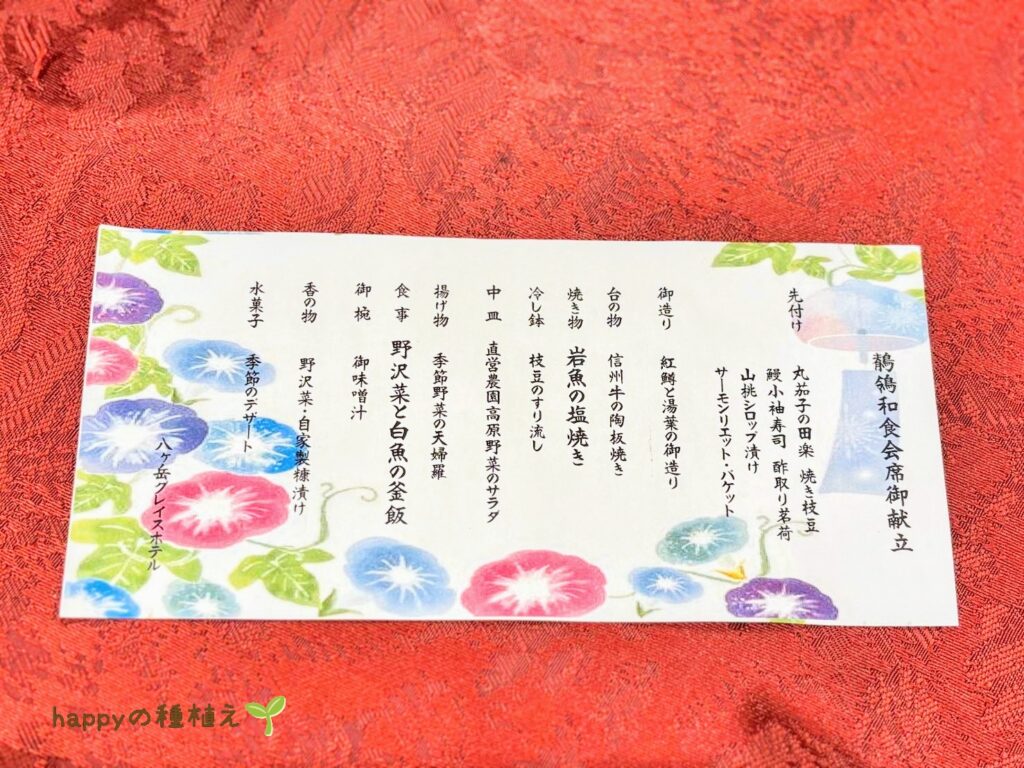 鶺鴒和食会席御献立
先付け 丸茄子の田楽 焼き枝豆
鰻小袖寿司 酢取り茗荷
山桃シロップ漬け
サーモンリエット・バケット
御造り 紅鱒と湯葉の御造り
台の物 信州牛の陶板焼き
焼き物 岩魚の塩焼き
冷し鉢 枝豆のすり流し
中皿 直営農園高原野菜のサラダ
揚げ物 季節野菜の天婦羅
食事 野沢菜と白魚の釜飯
御椀 御味噌汁
香の物 野沢菜・自家製糠漬け
水菓子 季節のデザート
八ヶ岳グレイスホテル
happyの種植え